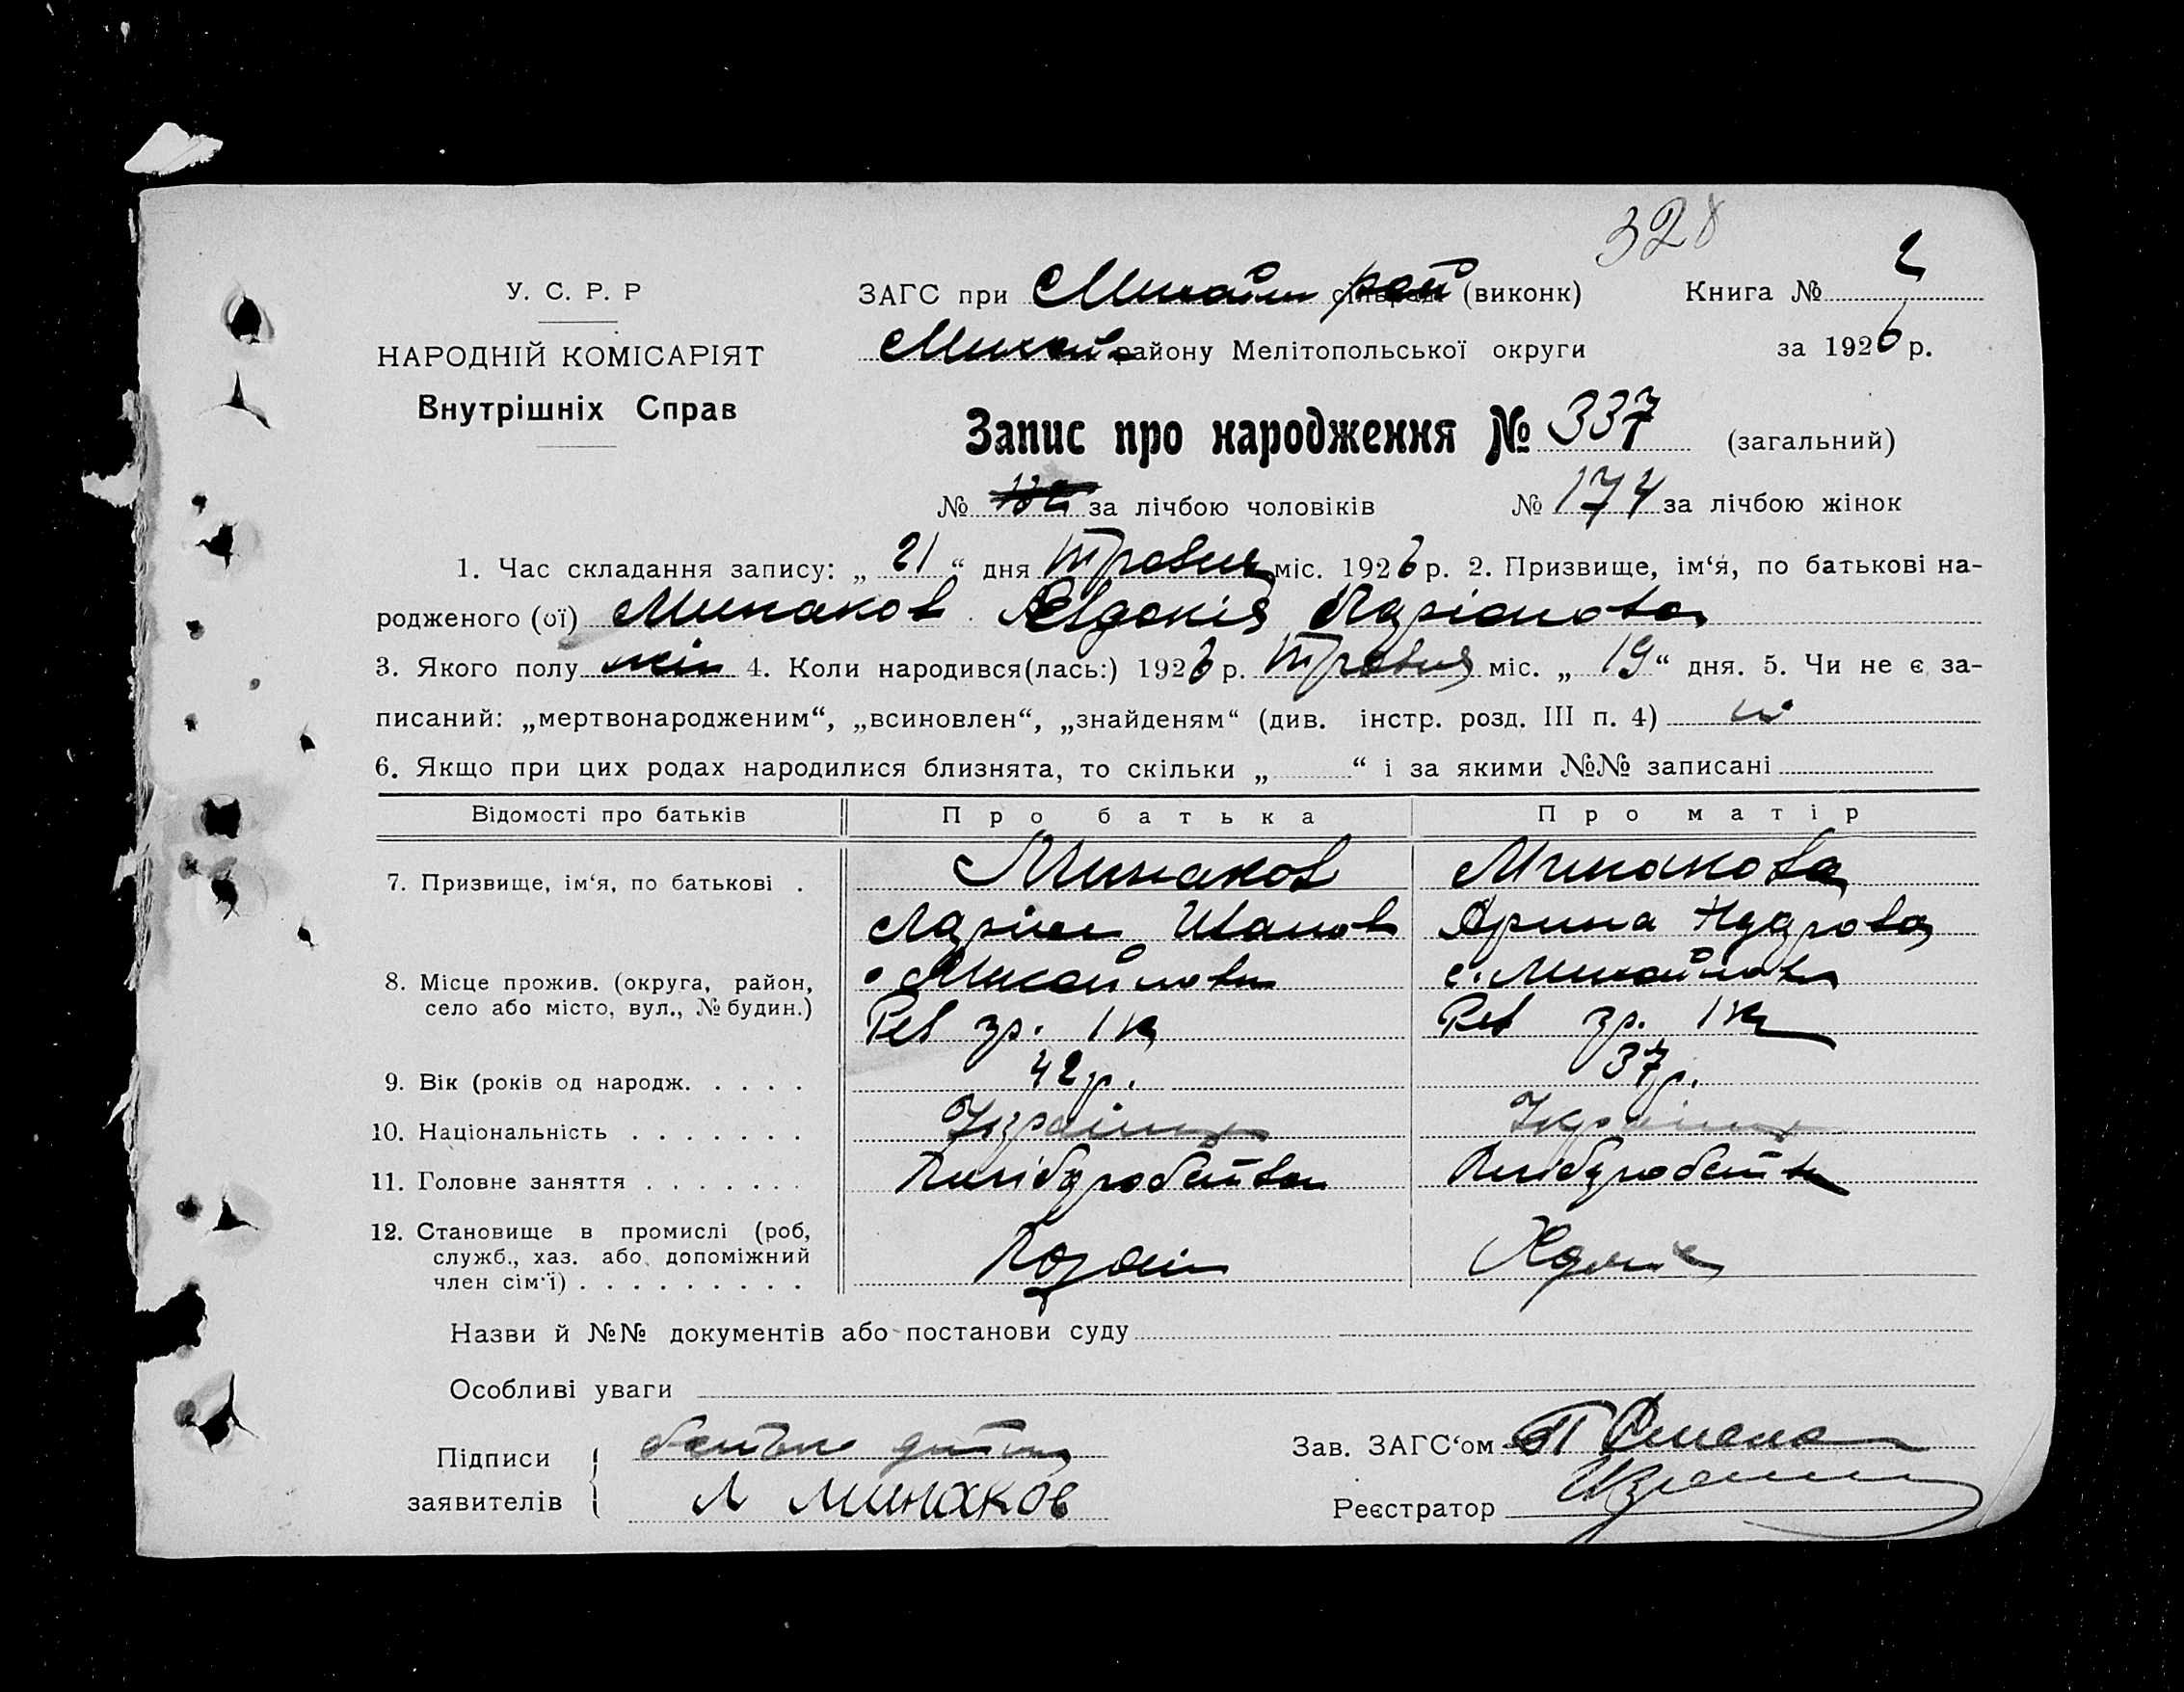 328
У. С. Р. Р
НАРОДНІЙ КОМІСАРІЯТ
Внутрішніх Справ
ЗАГС при Михайл рай (виконк)
Книга № 2
Михай району Мелітопольської округи
за 1926 р.
Запис про народження № 337 (загальний)
№ за лічбою чоловіків № 174 за лічбою жінок
1. Час складання запису: „ 21 “ дня травня міс. 1926 р. 2. Призвище, ім‘я, по батькові на-
родженого (ої) Минаков Євдокія Ларіонова
3. Якого полу жін 4. Коли народився(лась:) 1926 р. травня міс. „ 19 “ дня. 5. Чи не є за-
писаний: „мертвонародженим“, „всиновлен“, „знайденям“ (див. інстр. розд. III п. 4) ні
6. Якщо при цих родах народилися близнята, то скільки „ “ і за якими №№ записані
Відомості про батьків Про батька Про матір
7. Призвище, ім‘я, по батькові . Минаков Минакова
Ларіон Иванов Арина
8. Місце прожив. (округа, район, село або місто, вул., № будин.) Михайловка с. Михайловка
Рев гр. 1 Рев гр. 1
9. Вік (років од народж. . . . . 42 р. 37 р.
10. Національність . . . . . . . Україн Україн
11. Головне заняття . . . . . . . Хлібдробство Хлібдробств
12. Становище в промислі (роб, служб., хаз. або допоміжний член сім‘ї) . . . . . . . . . Хозаін
Назви й №№ документів або постанови суду
Особливі уваги
Підписи заявителів { батько дитини
Л Минаков
Зав. ЗАГС‘ом
Реєстратор